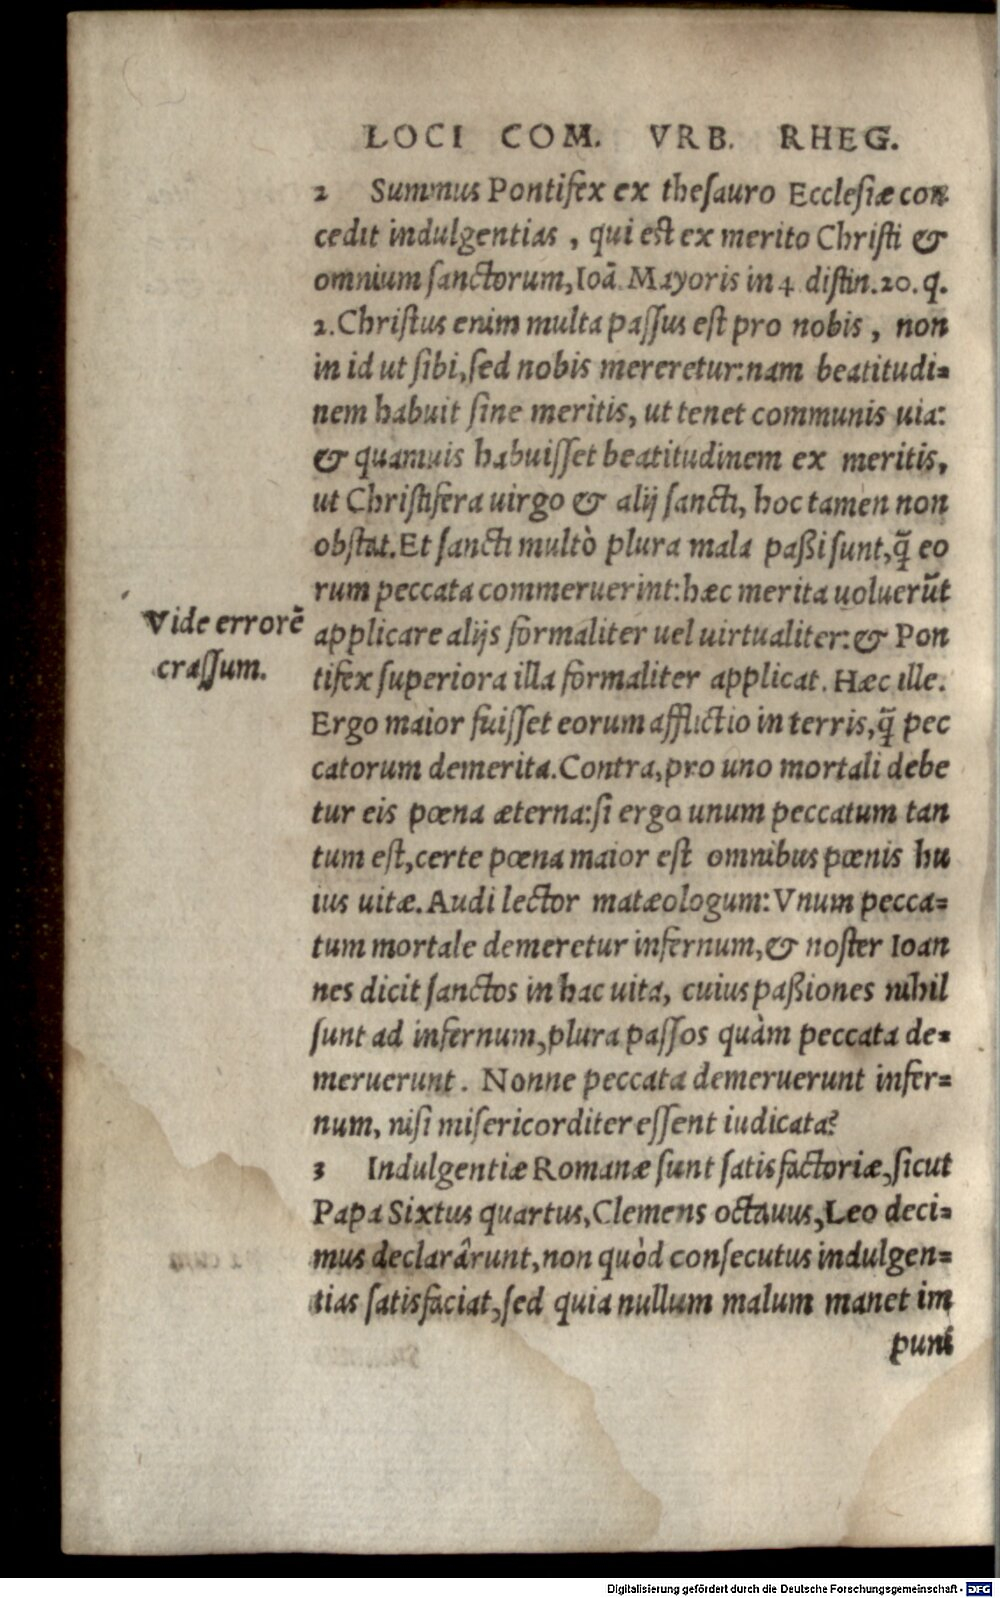 LOCI COM. VRB. RHEG.
2 Summus Pontifex ex theſauro Eccleſiæ con
cedit indulgentias, qui eſt ex merito Chriſti &
omnium ſanctorum, Ioā. Mayoris in 4 diſtin. 20. q.
2. Chriſtus enim multa paſſus eſt pro nobis, non
in id ut ſibi, ſed nobis mereretur: nam beatitudi=
nem habuit ſine meritis, ut tenet communis uia:
& quamuis habuiſſet beatitudinem ex meritis,
ut Chriſtifera uirgo & alij ſancti, hoc tamen non
obſtat. Et ſancti multò plura mala paßi ſunt, q̄ eo
rum peccata commeruerint: hæc merita uoluerūt
Vide errorē
craſſum.
applicare alijs formaliter uel uirtualiter: & Pon
tifex ſuperiora illa formaliter applicat. Hæc ille.
Ergo maior fuiſſet eorum afflictio in terris, q̄ pec
catorum demerita. Contra, pro uno mortali debe
tur eis pœna æterna: ſi ergo unum peccatum tan
tum eſt, certe pœna maior eſt omnibus pœnis hu
ius uitæ. Audi lector matæologum: Vnum pecca=
tum mortale demeretur infernum, & noſter Ioan
nes dicit ſanctos in hac uita, cuius paßiones nihil
ſunt ad infernum, plura paſſos quàm peccata de=
meruerunt. Nonne peccata demeruerunt infer=
num, niſi miſericorditer eſſent iudicata?
3 Indulgentiæ Romanæ ſunt ſatisfactoriæ, ſicut
Papa Sixtus quartus, Clemens octauus, Leo deci=
mus declarârunt, non quòd conſecutus indulgen=
tias ſatisfaciat, ſed quia nullum malum manet im
puni
Digitalisierung gefördert durch die Deutsche Forschungsgemeinschaft - DFG